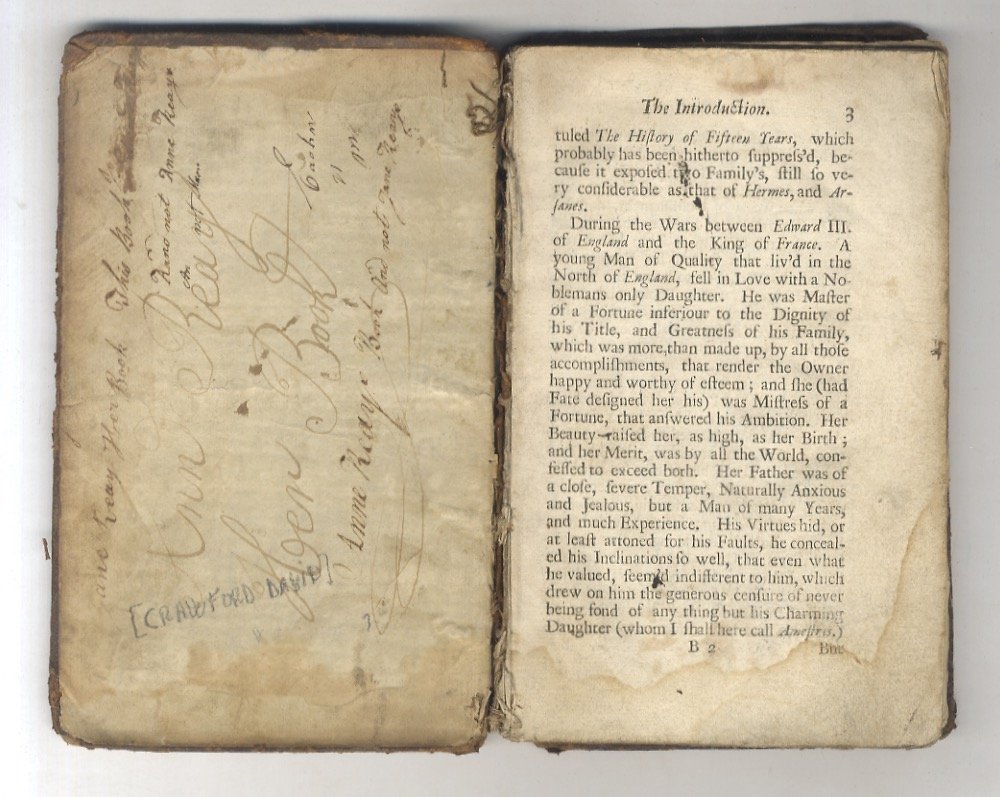 Jane Keay Her Book This Book
Keay not Anne Keays
not them
Ann Keay
her Book
Anne Keays Book and not Jane Keays
[CRAWFORD DAVID]
3
The Introduction. 3
tuled The Hiſtory of Fifteen Years, which
probably has been hitherto ſuppreſs'd, be-
cauſe it expoſed two Family's, ſtill ſo ve-
ry conſiderable as that of Hermes, and Ar-
ſanes.
During the Wars between Edward III.
of England and the King of France. A
young Man of Quality that liv'd in the
North of England, fell in Love with a No-
blemans only Daughter. He was Maſter
of a Fortune inferiour to the Dignity of
his Title, and Greatneſs of his Family,
which was more,than made up, by all thoſe
accompliſhments, that render the Owner
happy and worthy of eſteem ; and ſhe (had
Fate deſigned her his) was Miſtreſs of a
Fortune, that anſwered his Ambition. Her
Beauty raiſed her, as high, as her Birth ;
and her Merit, was by all the World, con-
feſſed to exceed both. Her Father was of
a cloſe, ſevere Temper, Naturally Anxious
and Jealous, but a Man of many Years,
and much Experience. His Virtues hid, or
at leaſt attoned for his Faults, he conceal-
ed his Inclinations ſo well, that even what
he valued, ſeem'd indifferent to him, which
drew on him the generous cenſure of never
being fond of any thing but his Charming
Daughter (whom I ſhall here call Ameſtris.)
B 2 But